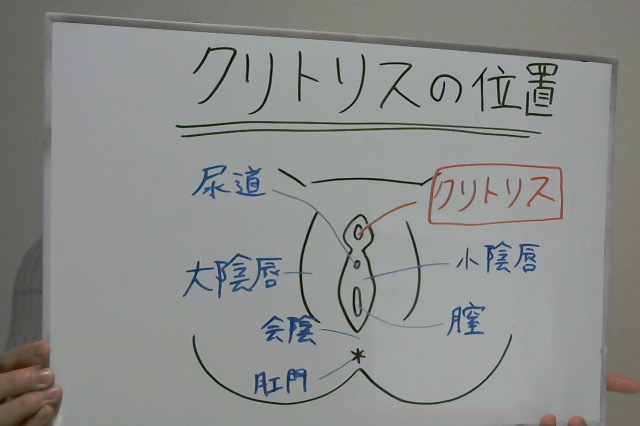 クリトリスの位置
尿道
クリトリス
大陰唇
小陰唇
会陰
膣
肛門